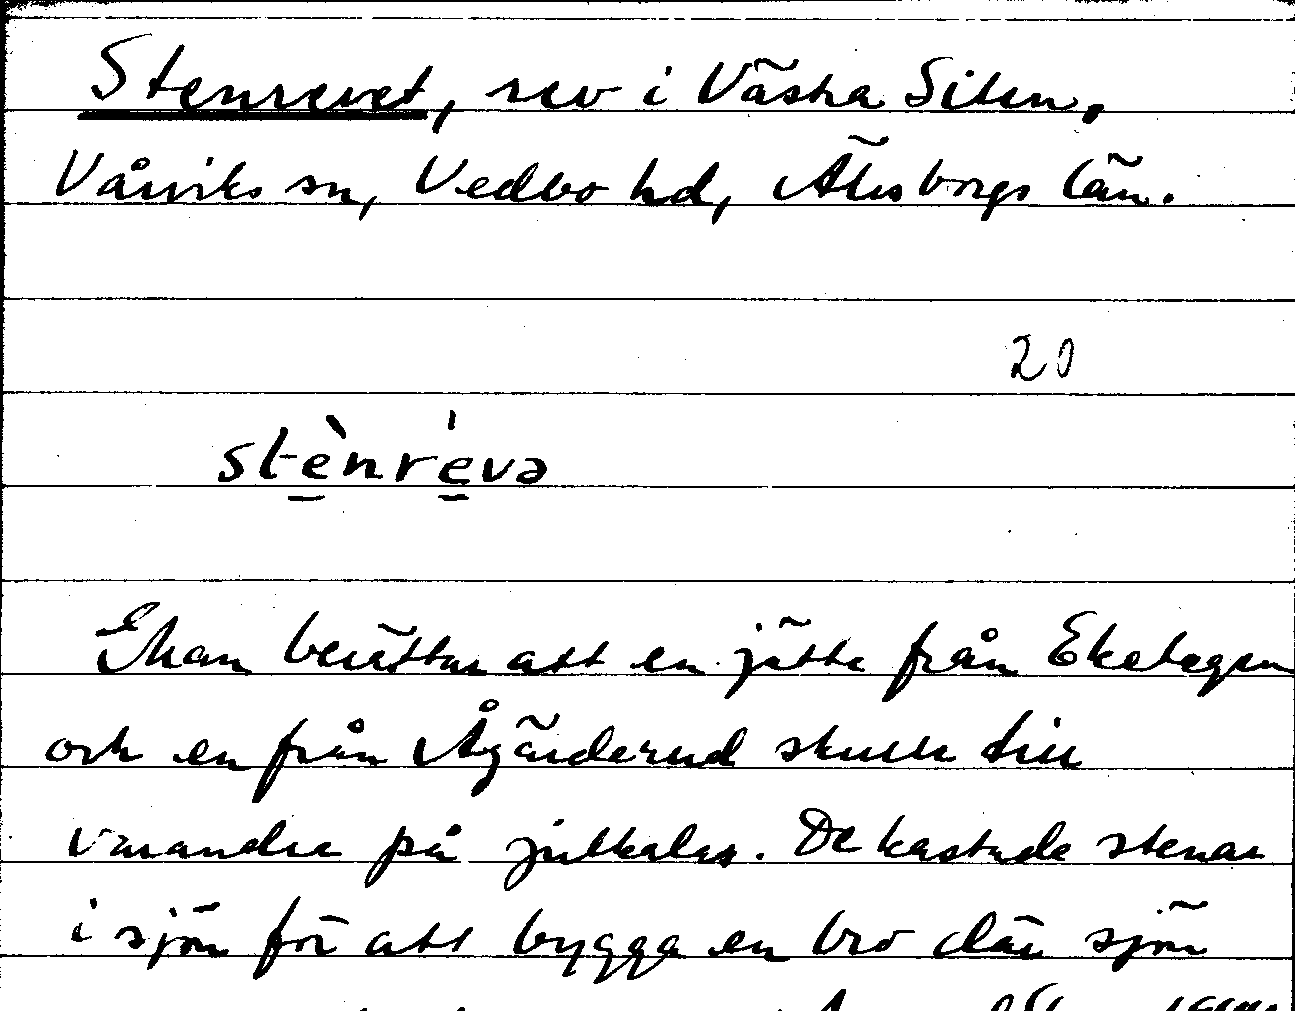 Stenrevet, rev i Västra Silen,
Vårviks sn, Vedbo hd, Älvsborgs län.
20
stènrévə
Man berättar att en jätte från Eketegen
och en från Ågärderud skulle till
varandra på julkalas. De kastade stenar
i sjön för att bygga en bro där sjön